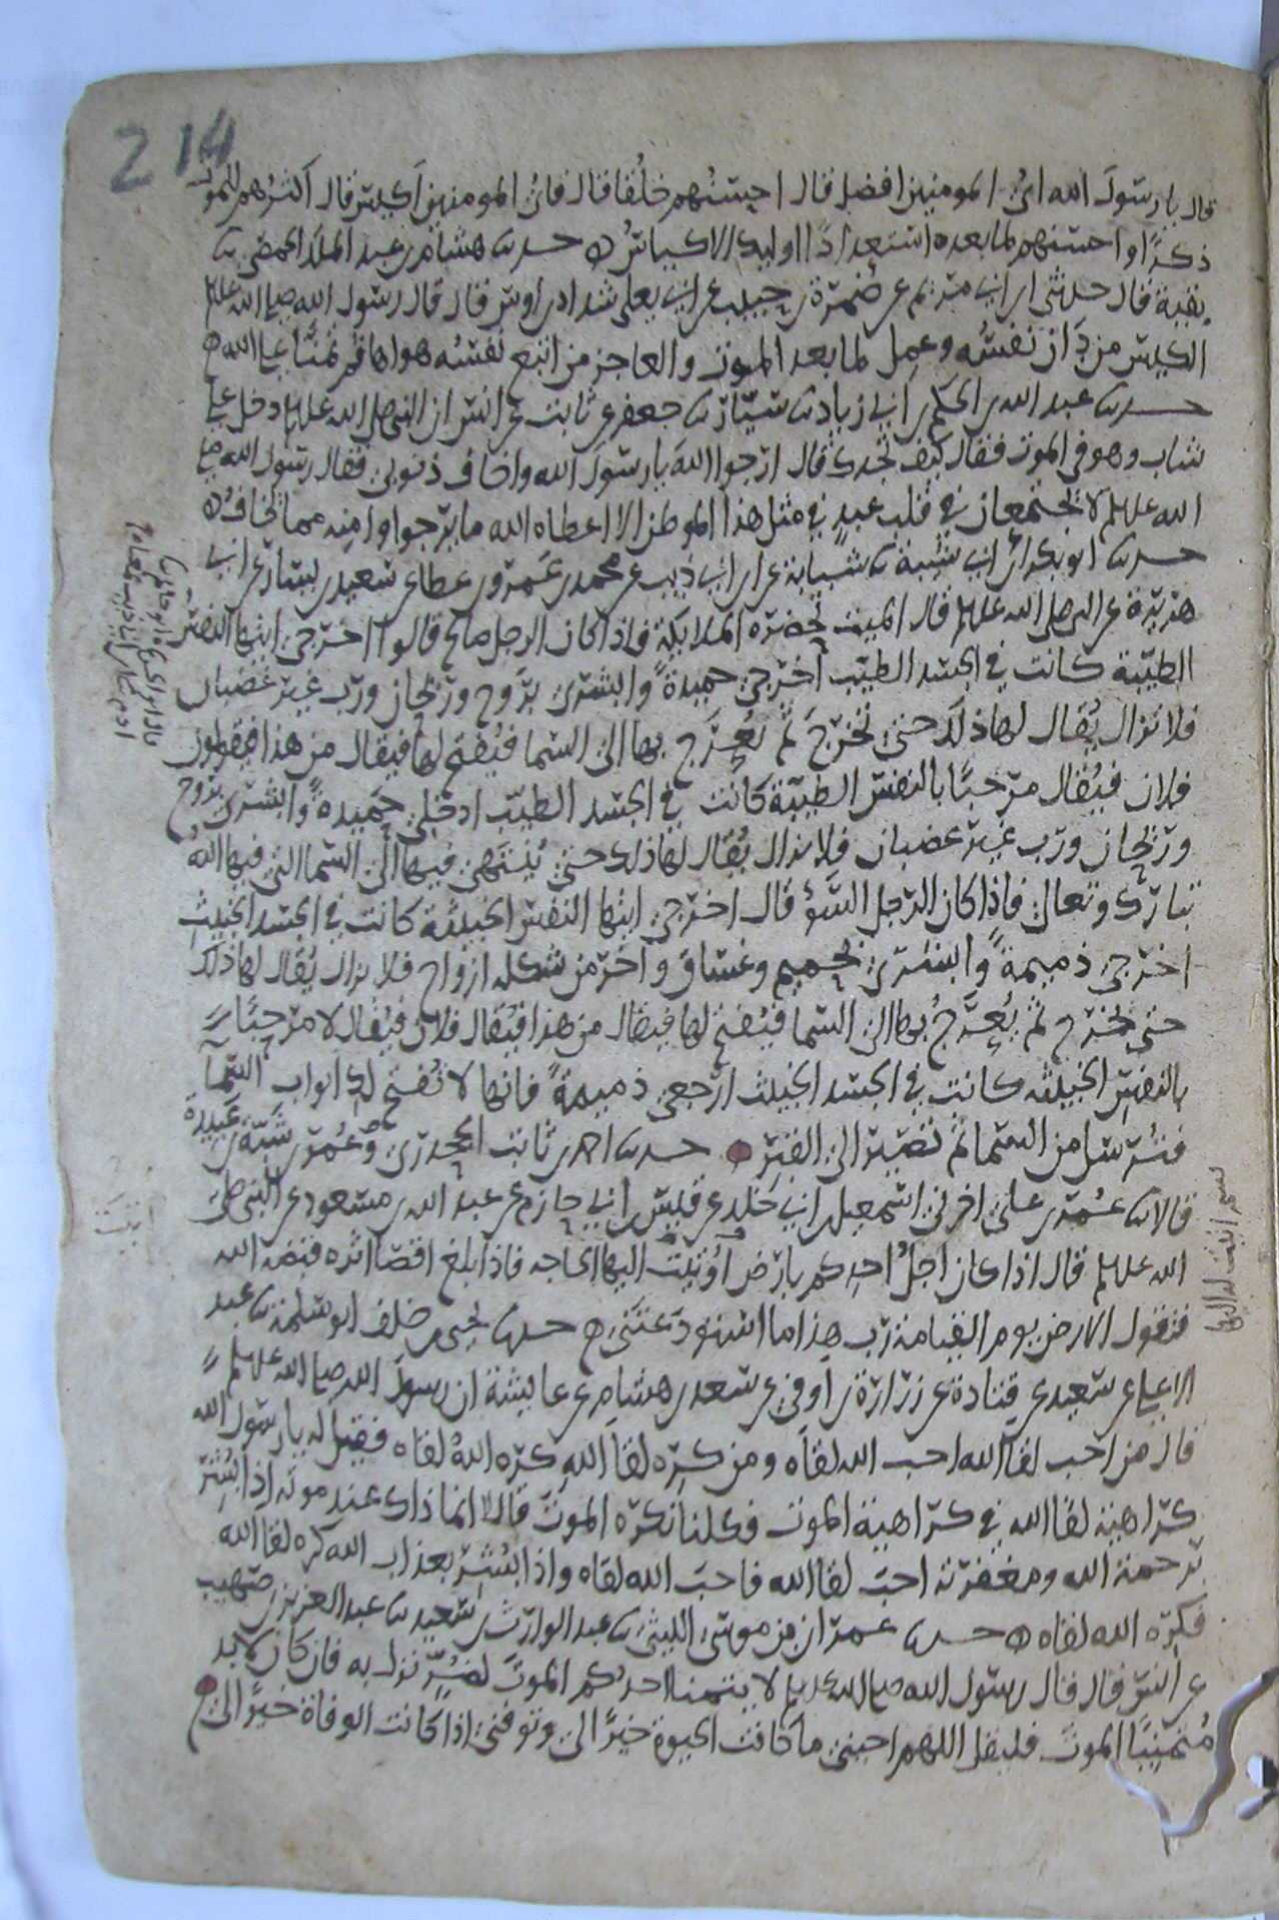 214
قال يا رسول الله اي المومنين افضل قال احسنهم خلقا قال فاي المومنين اكيس قال اكثرهم للموت
ذكرا واحسنهم لما بعده استعدادا اوليك الاكياس حدثنا هشام بن عبد الملك الحمصي ثنا
بقية قال حدثني ابن ابي مريم عن ضمرة بن حبيب عن ابي يعلى شداد بن اوس قال قال رسول الله صلى الله عليه
الكيس من دان نفسه وعمل لما بعد الموت والعاجز من اتبع نفسه هواها ثم تمنا على الله
حدثنا عبد الله بن الحكم بن ابي زياد ثنا سيار ثنا جعفر عن ثابت عن انس ان النبي صلى الله عليه وسلم دخل على
شاب وهو في الموت فقال كيف تجدك قال ارجوا الله يا رسول الله واخاف ذنوبي فقال رسول الله صلى
الله عليه وسلم لا تجتمعان في قلب عبد في مثل هذا الموطن الا اعطاه الله ما يرجوا وامنه مما يخاف
حدثنا ابو بكر بن ابي شيبة ثنا شبابة عن ابن ابي ذيب عن محمد بن عمرو بن عطا عن سعيد بن يسار عن ابي
هريرة عن النبي صلى الله عليه وسلم قال الميت تحضره الملايكة فاذا كان الرجل صالح قالوا اخرجي ايتها النفس
الطيبة كانت في الجسد الطيب اخرجي حميدة وابشري بروح وريحان ورب غير غضبان
فلا تزال يقال لها ذلك حتى تخرج ثم يعرج بها الى السما فيفتح لها فيقال من هذا فيقولون
فلان فيقال مرحبا بالنفس الطيبة كانت في الجسد الطيب ادخلي حميدة وابشري بروح
وريحان ورب غير غضبان فلا يزال يقال لها ذلك حتى ينتهى فيها الى السما التي فيها الله
تبارك وتعالى فاذا كان الرجل السوء قال اخرجي ايتها النفس الخبيثة كانت في الجسد الخبيث
اخرجي ذميمة وابشري بحميم وغساق واخر من شكله ازواج فلا يزال يقال لها ذلك
حتى تخرج ثم يعرج بها الى السما فيفتح لها فيقال من هذا فيقال فلان فيقال لا مرحبا
بالنفس الخبيثه كانت في الجسد الخبيث ارجعي ذميمة فانها لا تفتح لك ابواب السما
فترسل من السما ثم تصير الى القبر حدثنا احمد بن ثابت الجحدري وعمر بن شبة بن عبيدة
قالا ثنا عمر بن علي اخبرني اسمعيل بن ابي خلد عن قيس بن ابي حازم عن عبد الله بن مسعود عن النبي صلى
الله عليه وسلم قال اذا كان اجل احدكم بارض اوثبت اليها الحاجه فاذا بلغ اقصا اثره قبضه الله
فتقول الارض يوم القيامة رب هذا ما استودعتني حدثنا يحيى بن خلف ابو سلمة ثنا عبد
الاعلى عن سعيد عن قتادة عن زرارة بن اوفى عن سعد بن هشام عن عايشة ان رسول الله صلى الله عليه وسلم
قال من احب لقا الله احب الله لقاه ومن كره لقا الله كره الله لقاه فقيل له يا رسول الله
كراهية لقا الله في كراهية الموت فكلنا نكره الموت قال لا انما ذاك عند موته اذا بشر
برحمة الله ومغفرته احب لقا الله فاحب الله لقاه واذا بشر بعذاب الله كره لقا الله
فكره الله لقاه حدثنا عمران بن موسى الليثي ثنا عبد الوارث بن سعيد ثنا عبد العزيز بن صهيب
عن انس قال قال رسول الله صلى الله عليه وسلم لا يتمنا احدكم الموت لضر نزل به فان كان لابد
متمنيا الموت فليقل اللهم احيني ما كانت الحيوة خيرا لي وتوفني اذا كانت الوفاة خيرا لي